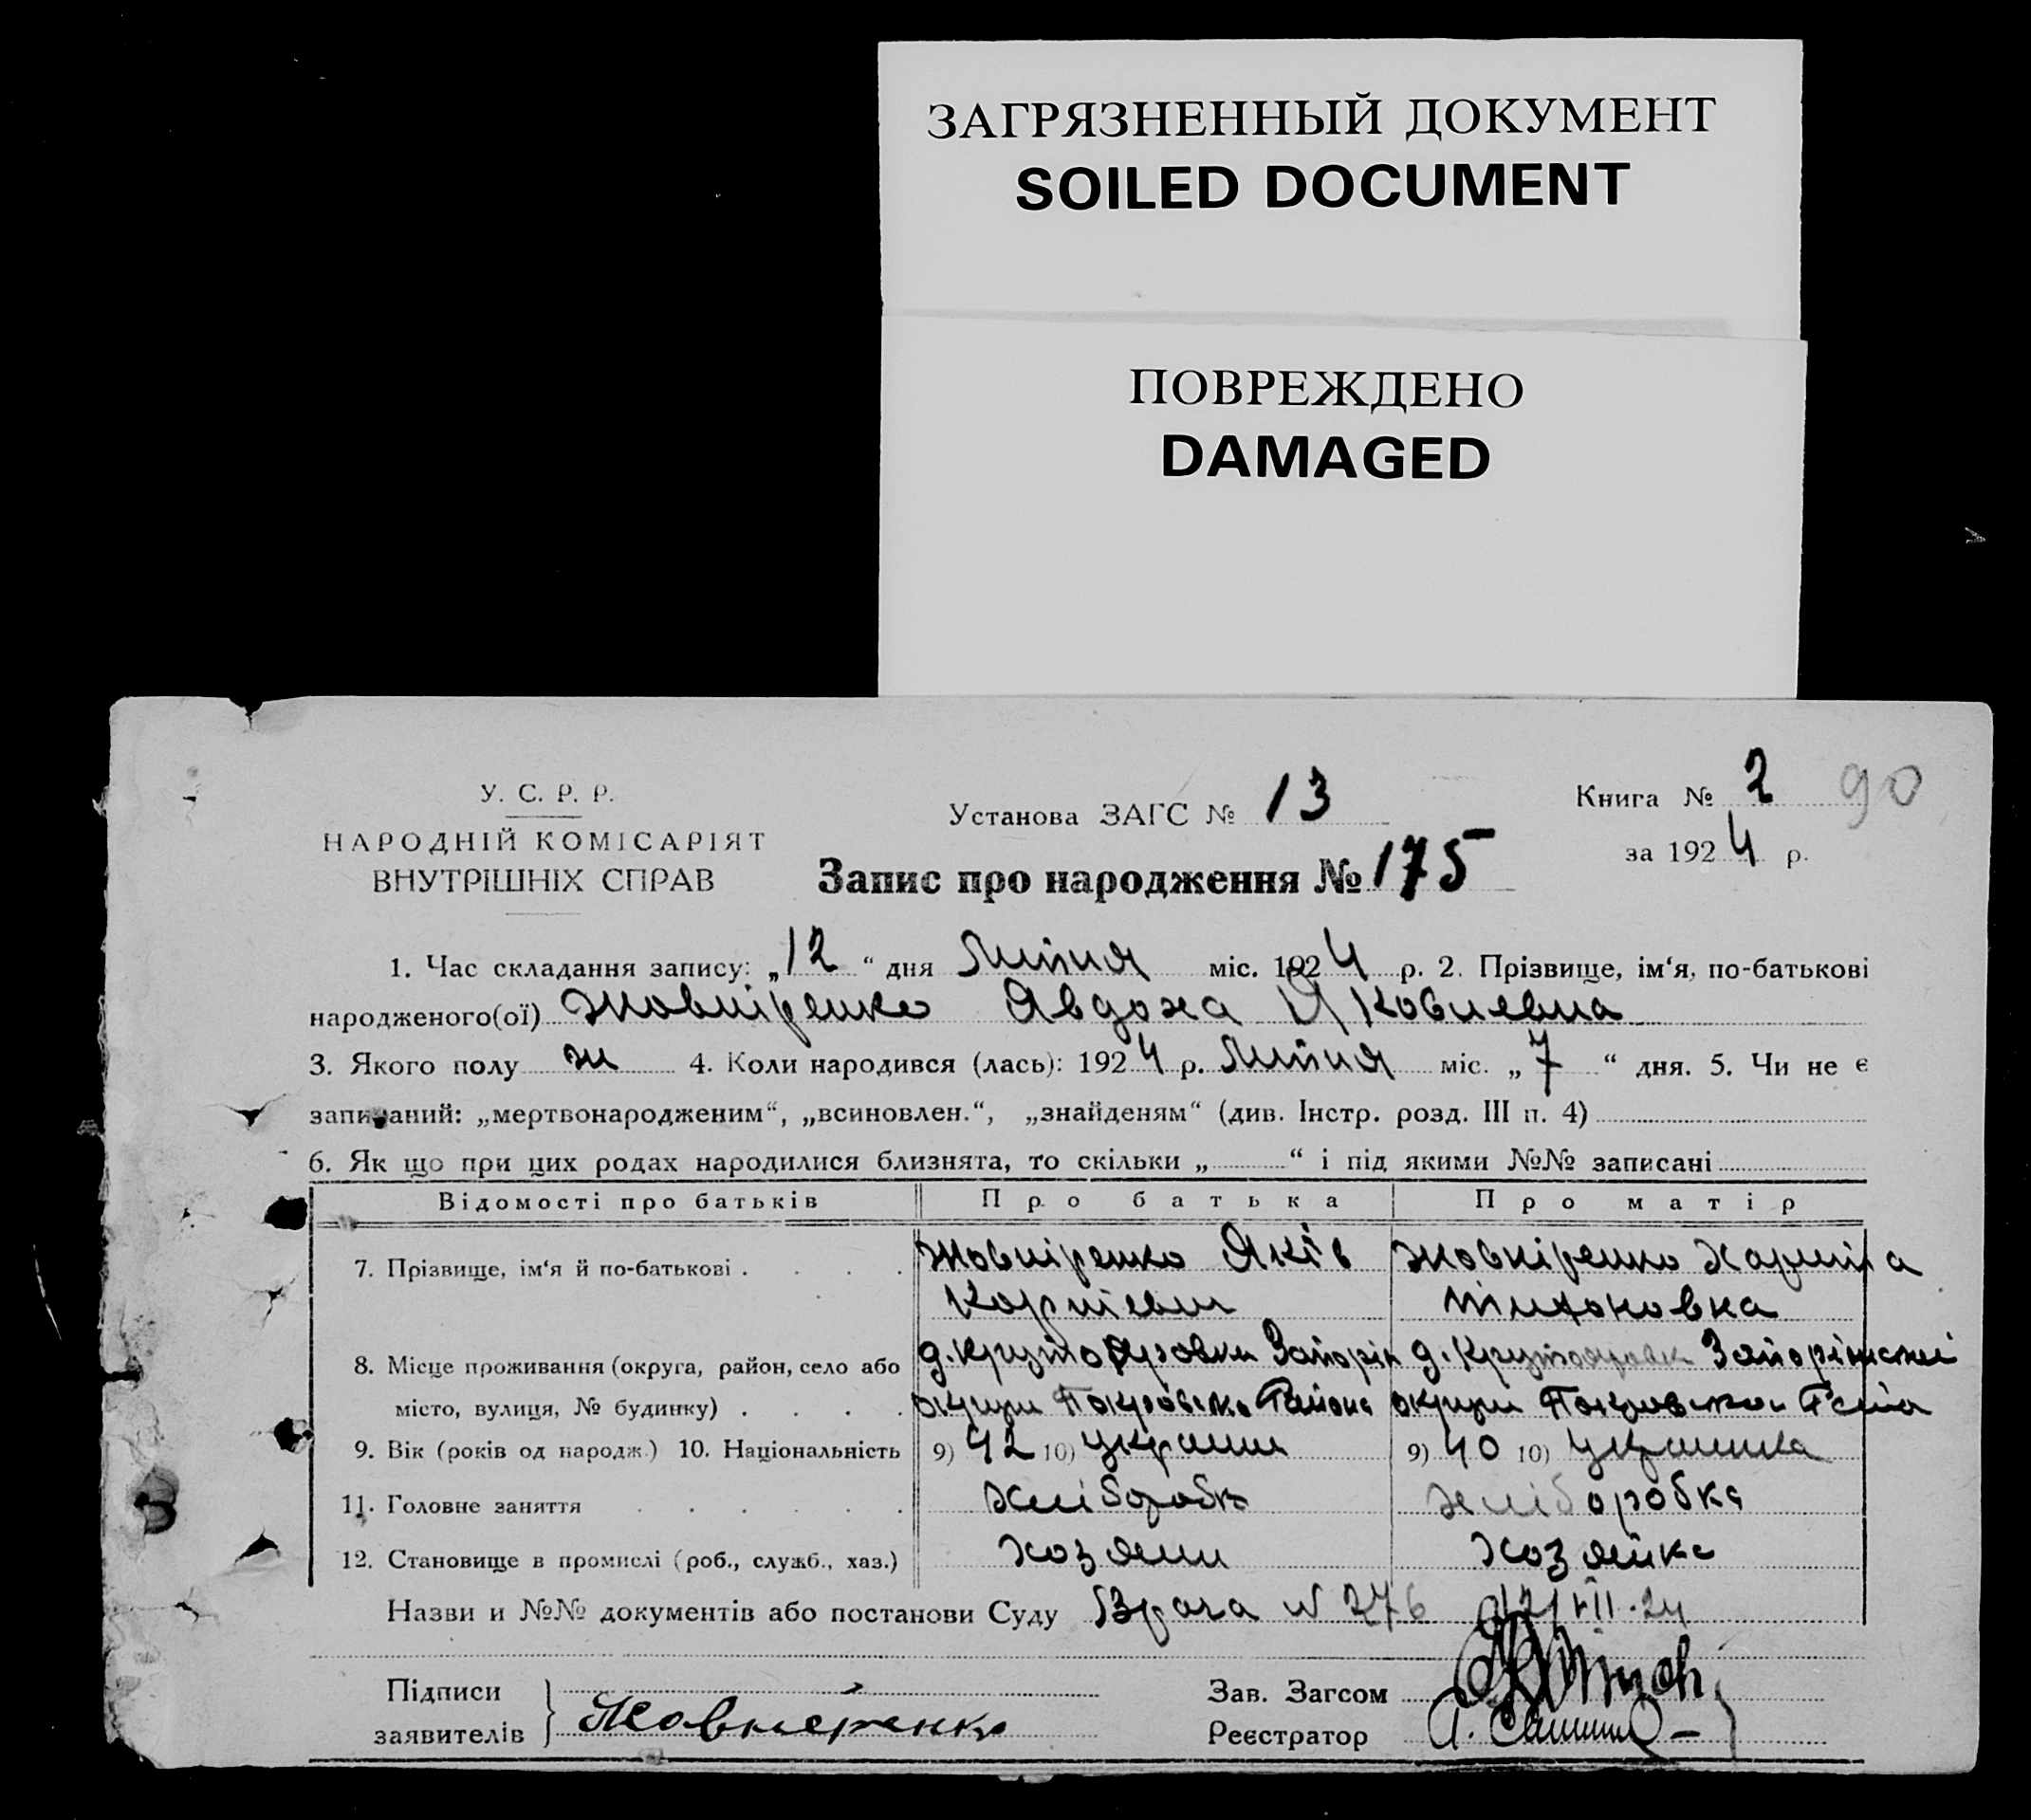 ЗАГРЯЗНЕННЫЙ ДОКУМЕНТ
SOILED DOCUMENT
ПОВРЕЖДЕНО
DAMAGED
У. С. Р. Р.
НАРОДНІЙ КОМІСАРІЯТ
ВНУТРІШНІХ СПРАВ
Установа ЗАГС № 13
Книга № 2 90
за 1924 р.
Запис про народження № 175
1. Час складання запису: „12“ дня Липня міс. 1924 р. 2. Прізвище, ім‘я, по-батькові
народженого(ої) Жовніренко Явдоха Яковлевна
3. Якого полу ж 4. Коли народився (лась): 1924 р. Липня міс. „7“ дня. 5. Чи не є
записаний: „мертвонародженим“, „всиновлен.“, „знайденям“ (див. Інстр. розд. III п. 4)
6. Як що при цих родах народилися близнята, то скільки „ “ і під якими №№ записані
Відомості про батьків Про батька Про матір
7. Прізвище, ім‘я й по-батькові Жовніренко Яків Жовніренко
Корнієвич
8. Місце проживання (округа, район, село або д. Крутояровки Запоріж д. Крутояровк Запоріжської
місто, вулиця, № будинку) округи Покровсько Района округи Покровської
9. Вік (років од народж.) 10. Національність 9) 42 10) украин 9) 40 10) украинка
11. Головне заняття Хлібороб Хліборобка
12. Становище в промислі (роб., служб., хаз.) хозяин хозяйка
Назви и №№ документів або постанови Суду Врача № 276 12/VII-24
Підписи
заявителів Жовніренко
Зав. Загсом
Реєстратор